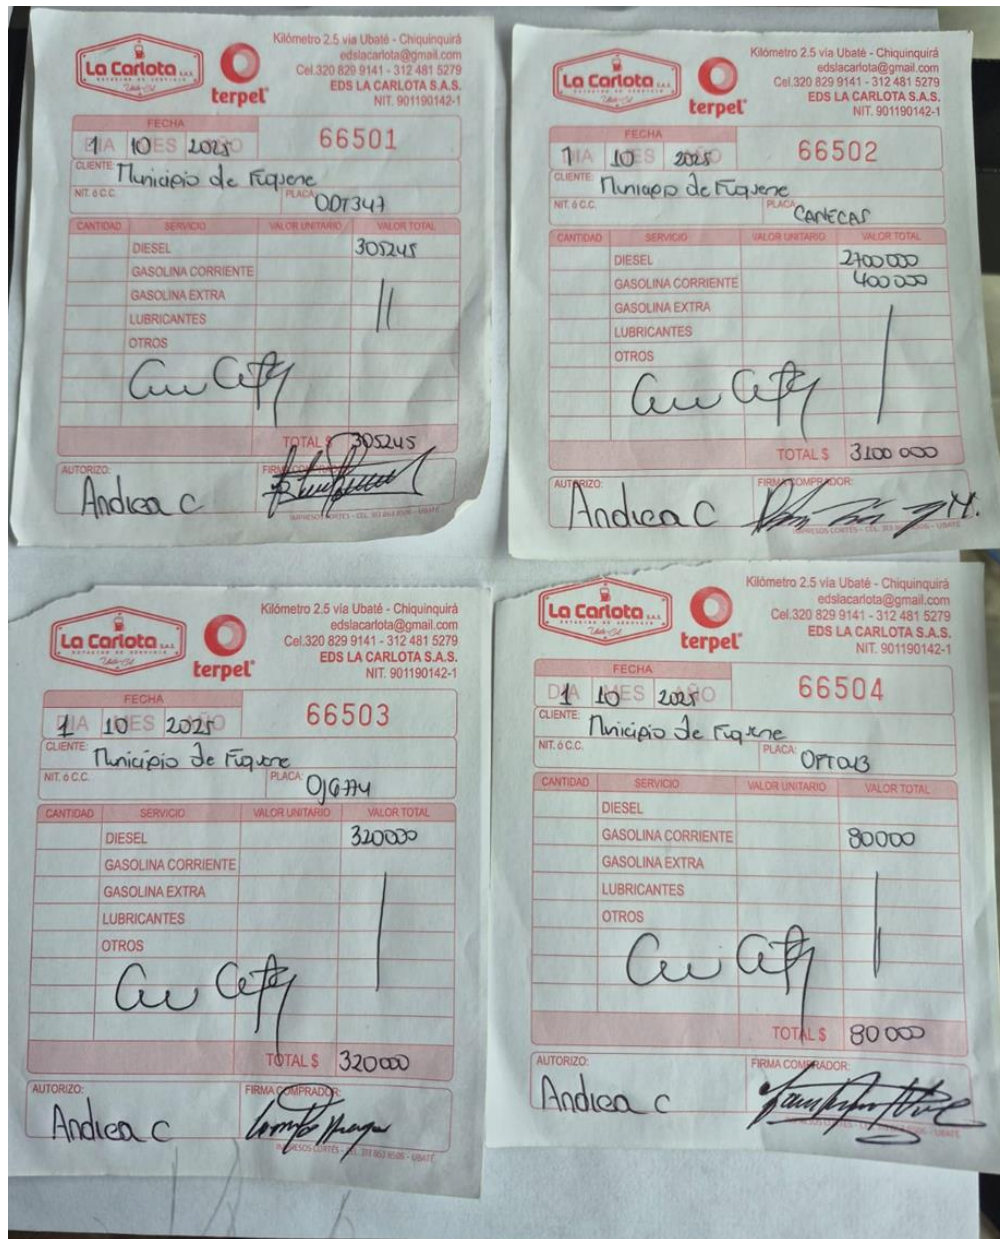 La Carlota S.A.S.
ESTACIÓN DE SERVICIO
Ubaté - Col
terpel
Kilómetro 2.5 vía Ubaté - Chiquinquirá
edslacarlota@gmail.com
Cel.320 829 9141 - 312 481 5279
EDS LA CARLOTA S.A.S.
NIT. 901190142-1
FECHA
DIA MES AÑO
1 10 2025
66501
CLIENTE: Municipio de Fúquene
NIT. ó C.C. PLACA: ODT347
CANTIDAD SERVICIO VALOR UNITARIO VALOR TOTAL
DIESEL 305245
GASOLINA CORRIENTE
GASOLINA EXTRA
LUBRICANTES
OTROS
TOTAL $ 305245
AUTORIZO: Andrea C
FIRMA COMPRADOR:
IMPRESOS CORTÉS - CEL. 313 863 8506 - UBATÉ
La Carlota S.A.S.
ESTACIÓN DE SERVICIO
Ubaté - Col
terpel
Kilómetro 2.5 vía Ubaté - Chiquinquirá
edslacarlota@gmail.com
Cel.320 829 9141 - 312 481 5279
EDS LA CARLOTA S.A.S.
NIT. 901190142-1
FECHA
DIA MES AÑO
1 10 2025
66502
CLIENTE: Municipio de Fúquene
NIT. ó C.C. PLACA: CANECAS
CANTIDAD SERVICIO VALOR UNITARIO VALOR TOTAL
DIESEL 2700000
GASOLINA CORRIENTE 400000
GASOLINA EXTRA
LUBRICANTES
OTROS
TOTAL $ 3100000
AUTORIZO: Andrea C
FIRMA COMPRADOR:
IMPRESOS CORTÉS - CEL. 313 863 8506 - UBATÉ
La Carlota S.A.S.
ESTACIÓN DE SERVICIO
Ubaté - Col
terpel
Kilómetro 2.5 vía Ubaté - Chiquinquirá
edslacarlota@gmail.com
Cel.320 829 9141 - 312 481 5279
EDS LA CARLOTA S.A.S.
NIT. 901190142-1
FECHA
DIA MES AÑO
1 10 2025
66503
CLIENTE: Municipio de Fúquene
NIT. ó C.C. PLACA:
CANTIDAD SERVICIO VALOR UNITARIO VALOR TOTAL
DIESEL 320000
GASOLINA CORRIENTE
GASOLINA EXTRA
LUBRICANTES
OTROS
TOTAL $ 320000
AUTORIZO: Andrea C
FIRMA COMPRADOR:
IMPRESOS CORTÉS - CEL. 313 863 8506 - UBATÉ
La Carlota S.A.S.
ESTACIÓN DE SERVICIO
Ubaté - Col
terpel
Kilómetro 2.5 vía Ubaté - Chiquinquirá
edslacarlota@gmail.com
Cel.320 829 9141 - 312 481 5279
EDS LA CARLOTA S.A.S.
NIT. 901190142-1
FECHA
DIA MES AÑO
1 10 2025
66504
CLIENTE: Municipio de Fúquene
NIT. ó C.C. PLACA:
CANTIDAD SERVICIO VALOR UNITARIO VALOR TOTAL
DIESEL
GASOLINA CORRIENTE 80000
GASOLINA EXTRA
LUBRICANTES
OTROS
TOTAL $ 80000
AUTORIZO: Andrea C
FIRMA COMPRADOR: